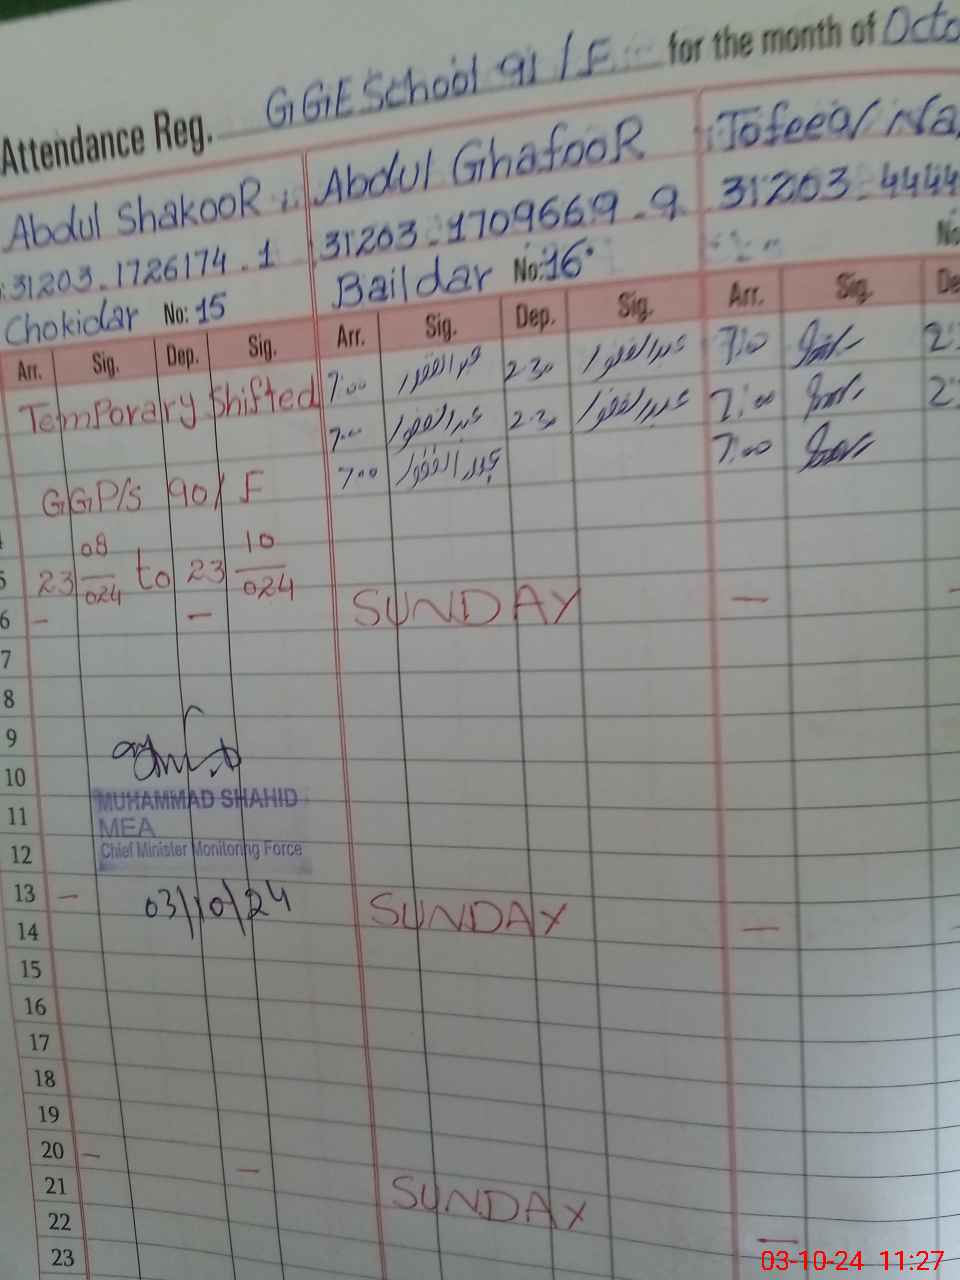 Attendance Reg. GGE School 91/F for the month of Octo
Abdul Shakoor
31203-1726174-1
Chokidar No: 15
Abdul Ghafoor
31203-1709669-9
Baildar No: 16
31203-4444
No
Arr. Sig. Dep. Sig. Arr. Sig. Dep. Sig. Arr. Sig. De
Temporary Shifted
GGP/s 90/F
23 08/024 to 23 10/024
7:00 عبدالغفور 2:30 عبدالغفور 7:00 2:
7:00 عبدالغفور 2:30 عبدالغفور 7:00 2:
7:00 عبدالغفور 7:00
5
6 - - SUNDAY - -
7
8
9
10
MUHAMMAD SHAHID
MEA
Chief Minister Monitoring Force
11
12
13 - 03/10/24 SUNDAY -
14
15
16
17
18
19
20 - - SUNDAY -
21
22
23
03-10-24 11:27